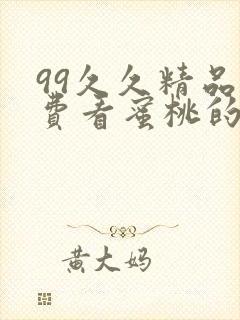 99久久精品
费看蜜桃的
黄大妈